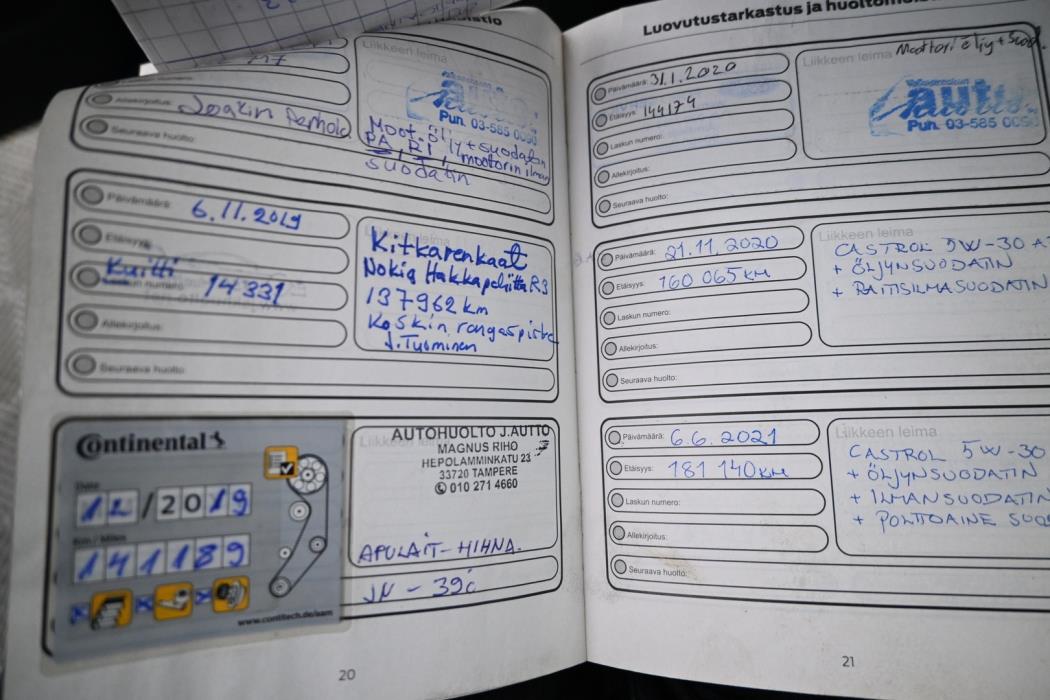 Liikkeen leima
Allekirjoitus:
Seuraava huolto:
Puh. 03-585
Moot. öljy + suodatin
PA, RI, moottorin ilman
suodatin
Päivämäärä: 6.11.2019
Etäisyys:
Kuitti
Laskun numero: 14331
Allekirjoitus:
Seuraava huolto:
Kitkarenkaat
Nokia Hakkapeliitta R3
137962 km
Koskin rengaspiste
J. Tuominen
Continental
Date
12/2019
Km / Miles
141189
www.contitech.de/aam
Liikkeen leima
AUTOHUOLTO J.AUTTO
MAGNUS RIHO
HEPOLAMMINKATU 23
33720 TAMPERE
010 271 4660
APULAIT-HIHNA.
20
Luovutustarkastus ja
Päivämäärä: 31.1.2020
Etäisyys: 144174
Laskun numero:
Allekirjoitus:
Seuraava huolto:
Liikkeen leima
Moottori öljy + Suod.
aut
Puh. 03-585
Päivämäärä: 21.11.2020
Etäisyys: 160 065 KM
Laskun numero:
Allekirjoitus:
Seuraava huolto:
Liikkeen leima
CASTROL 5W-30
+ ÖLJYNSUODATIN
+ RAITISILMASUODATIN
Päivämäärä: 6.6.2021
Etäisyys: 181 140 KM
Laskun numero:
Allekirjoitus:
Seuraava huolto:
Liikkeen leima
CASTROL 5W-30
+ ÖLJYNSUODATIN
+ ILMANSUODATIN
+ POLTTOAINE
21